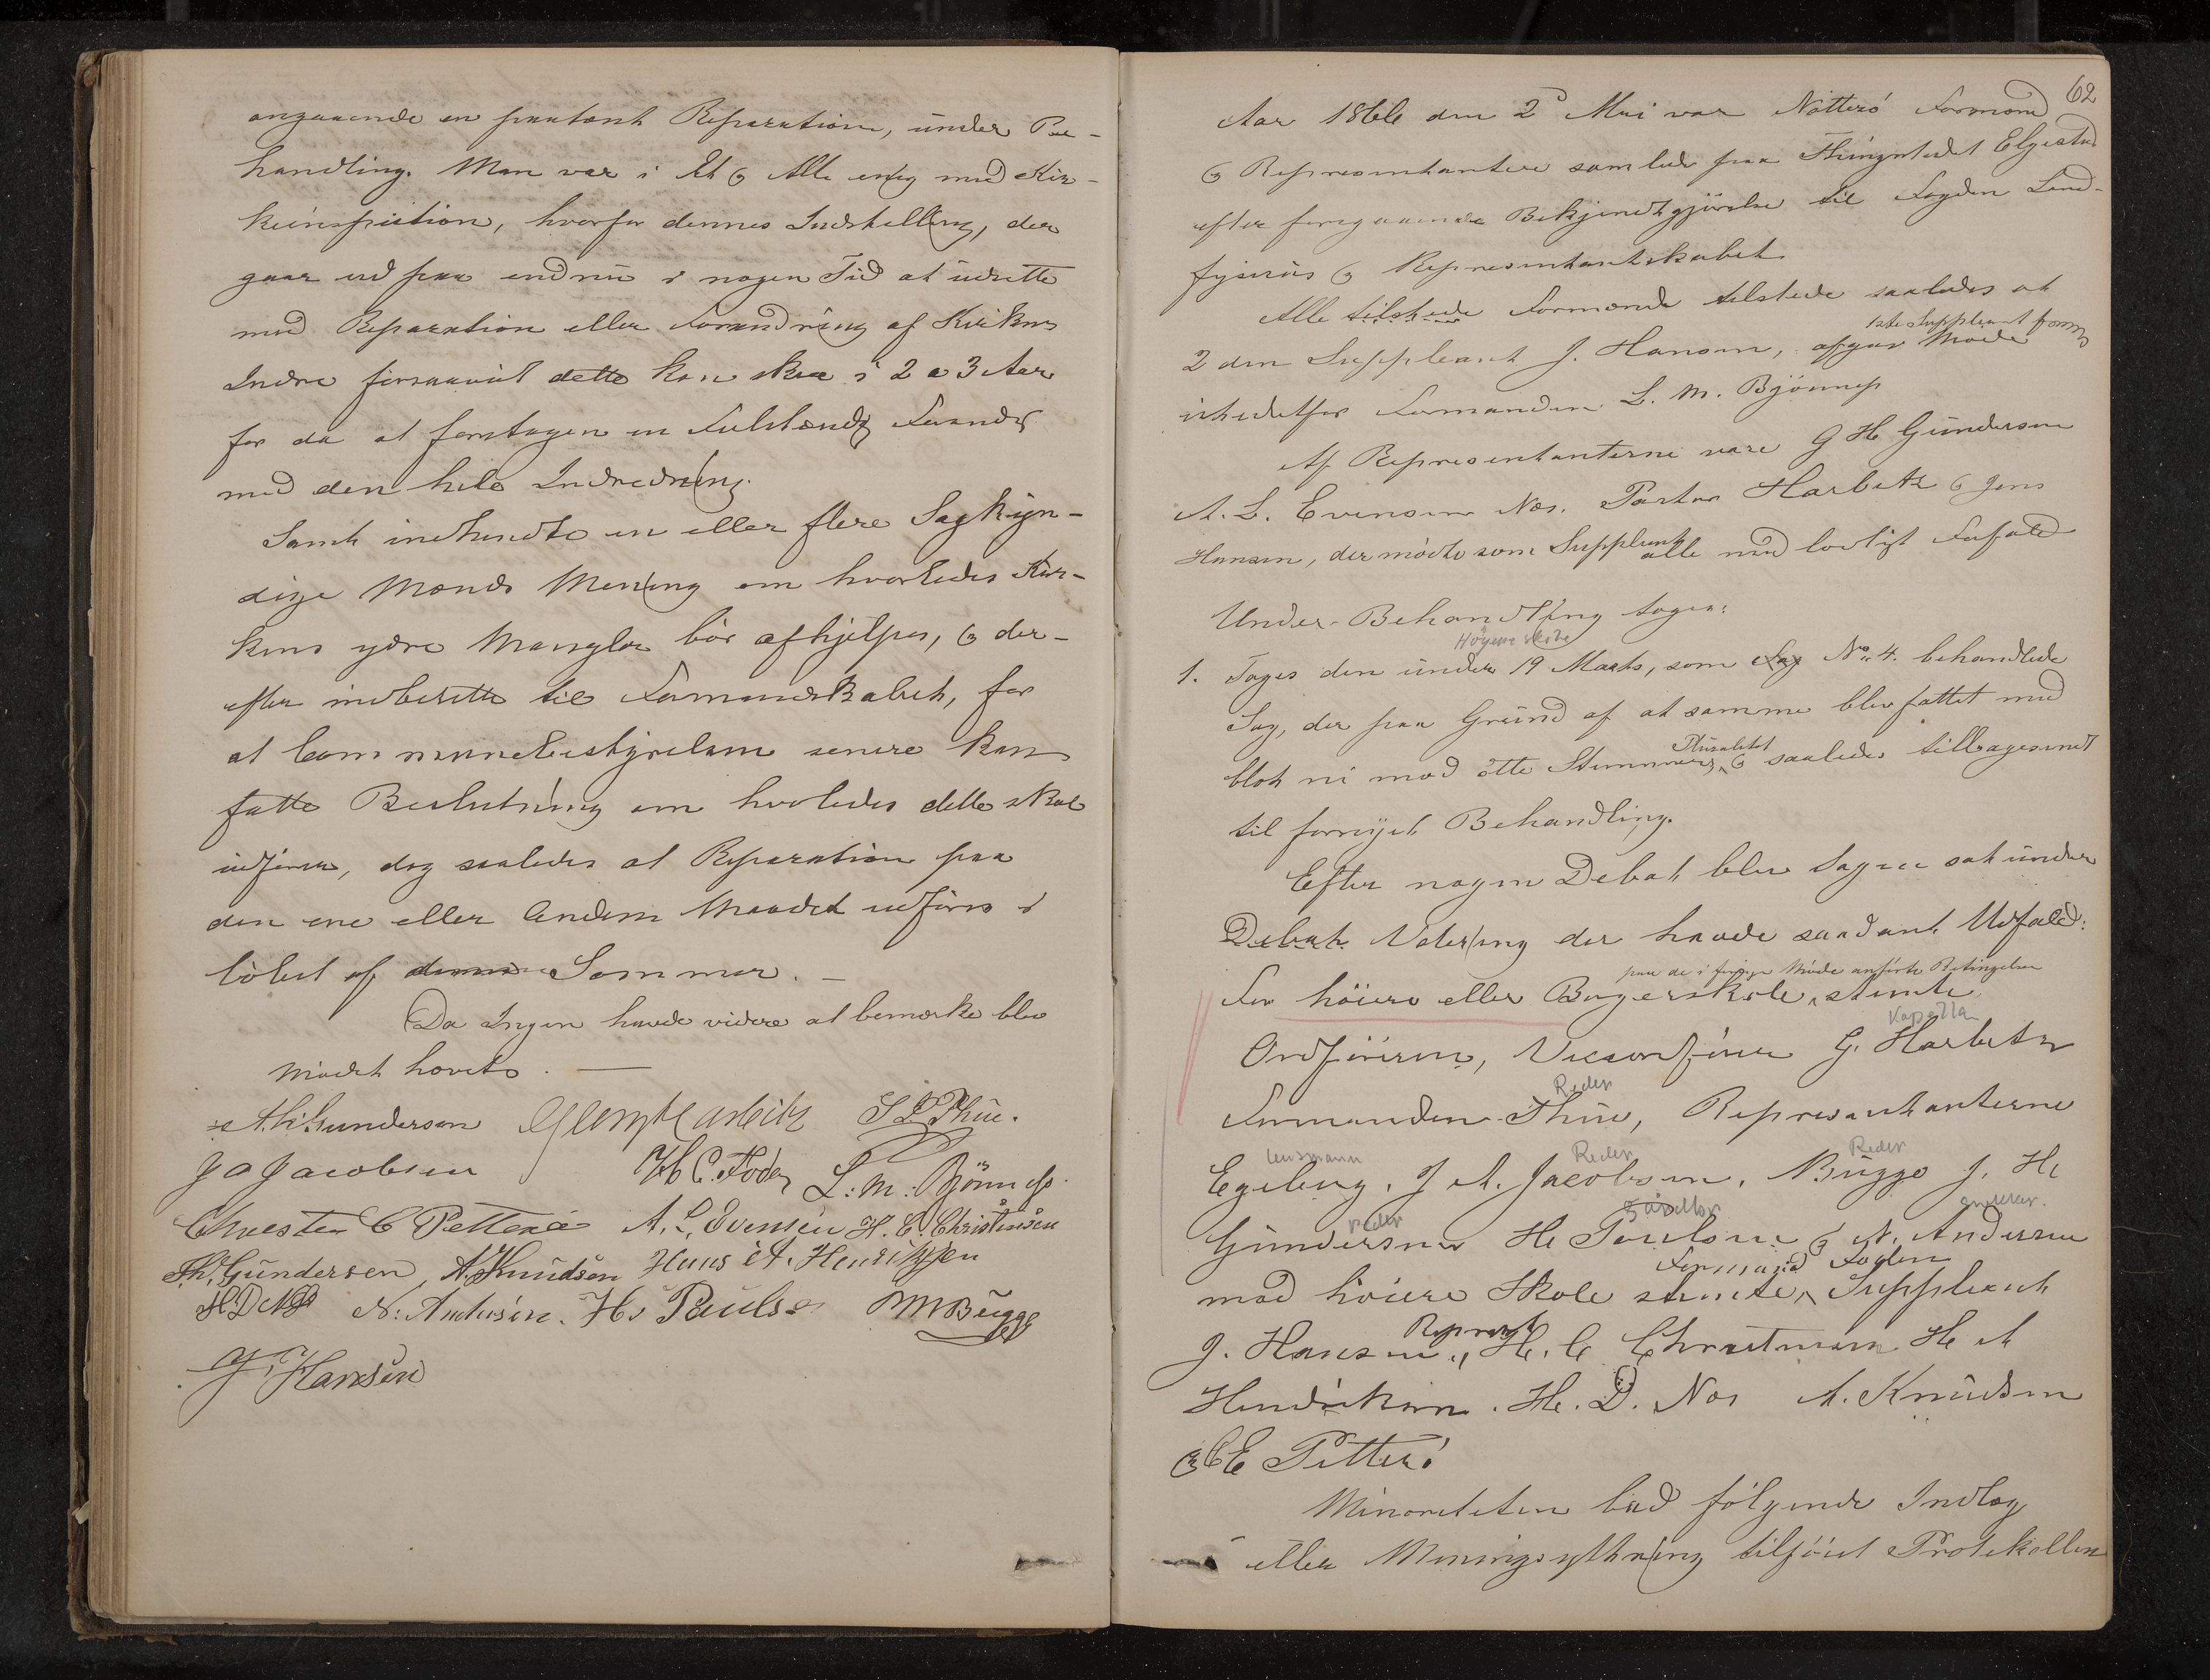 angaaende en paatænkt Reparation, under Be-
handling. Man var i Et & Alt enig med Kir-
keinspection, hvorfor dennes Indstilling, der
gaar ud paa endnu i nogen Tid at udsætte
med Reparation eller Forandring af Kirkens
Indre forsaavidt dette kan skee i 2 a 3 Aar
for da at foretagen en Fulstændig Forandr
med den hele Indredning.
Samt indhendte en eller flere Sagkyn-
dige Mænds Mening om hvorledes Kir-
kens ydre Mangler bör afhjelpes, & der-
efter indberette til Formandskabet, for
at Communebestyrelsen senere kan
fatte Beslutning om hvoledes dette skal
udföres, dog saaledes at Reparation paa
den ene eller Anden Maade udföres i
löbet af denne Sommer. —
Da Ingen havde videre at bemærke blev
Mödet hævet. —
A.H. Gunderson Georg Harbitz S L Thue.
J A Jacobsen H C Foden L: M: Bjönness.
Chresten C Petterö A. L. Evensen H. C. Christensen
Th. Gundersen, A. Knudsen Hans A. Henriksen
H. D. Næs N: Andersen. Hs Paulsen M Bugge
J. Hansen
62
Aar 1866 den 2d Mai var Nötterö Formænd
& Representantere samlede paa Thingstedet Elgestad
efter foregaaende Bekjendtgjörelse til Fogden Lens-
Representantskabet
Alle tilstede Formænd tilstede saaledes at
1ste Suppleant
2den Suppleant J. Hansen, afgav Möde
istedetfor Formanden L. M. Bjönness
Af Representanterne vare G H Gundersen
A. L. Evensen Næs. Pastor Harbitz & Jens
Hansen, der mödte som Suppleant alle med lovligt Forfald
Under Behandling toges:
Høyere skole
1. Toges den under 19 Marts, som Sag No 4. behandlede
Sag, der paa Grund af at samme blev fattet med
blot ni mod otte Stemmers Pluralitet & saaledes tilbagesendt
til fornyet Behandling.
Efter nogen Debat blev Sagen sat under
Debat Votering der havde saadant Udfald:
paa de i forrige Möde anförte Betingelser
For höiere eller Borgerskole, stemte
Kapellan
Ordföreren, Viceordförer G. Harbitz
Reder
Formanden Thue, Representanterne
Lensmann Reder Reder
Egeberg, J A. Jacobsen, Bugge J. H.
reder
Gundersen H Poulsen & N. Andersen
Formand Foden
mod höiere Skole stemte, Suppleant
Represent
J. Hansen, H. C Christensen H A
Hendriksen. H. D. Næs A. Knudsen
& C E Petterö
Minoriteten bad fölgende Indlæg
eller Meningsyttring tilföiet Protokollen